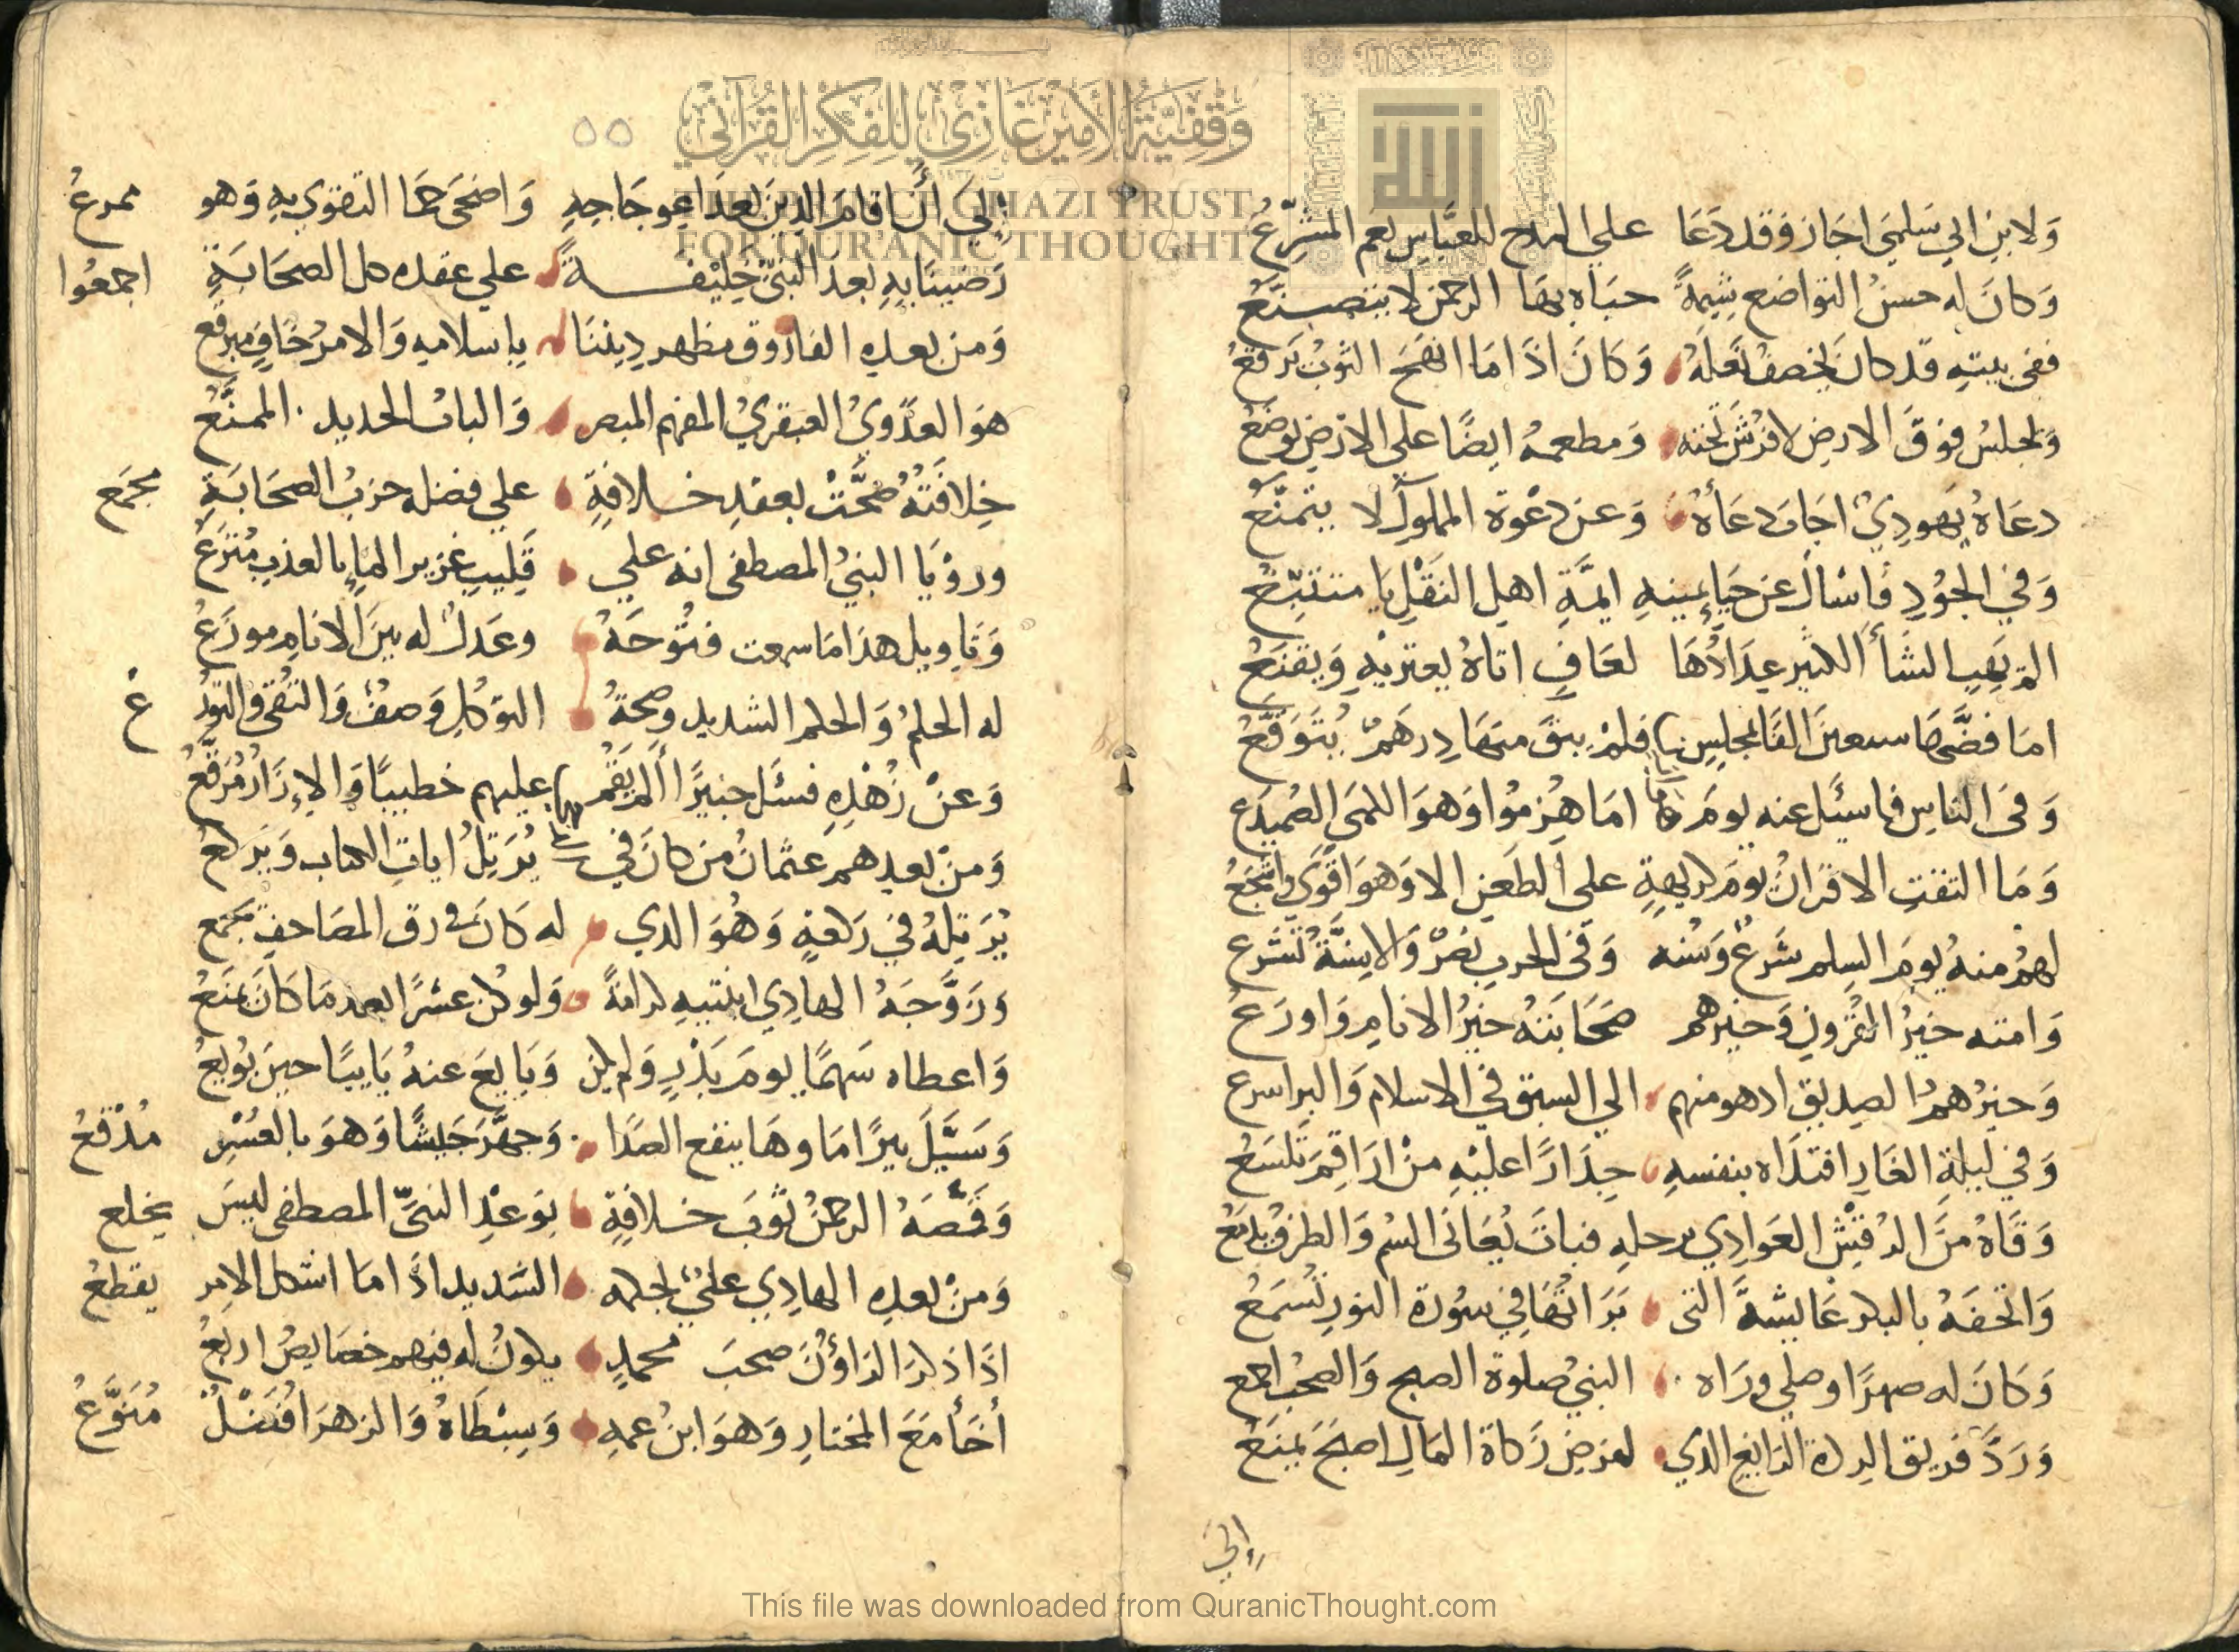 وَقْفِيَّةُ الأَمِيْرِ غَازِي لِلْفِكْرِ القُرْآنِي
THE PRINCE GHAZI TRUST
FOR QUR'ANIC THOUGHT
وَلابنِ ابي سَلمي اجَازَ وَقد دَعَا علي المدح للعبَّاسِ نعم المشرّعُ
وَكانَ له حسنُ التواضع شِيمةً حبَاه بهَا الرحمن لا يتصنَّعُ
ففي بيتهِ قد كانَ يخصفُ نَعْلَهُ وَكَانَ اذَا مَا انهَجَ الثوبُ يَرقعُ
وَيجلسُ فوقَ الارضِ لا فرْشَ تحته وَمطعمهُ ايضًا على الارْضِ يوضَعُ
دعَاهُ يهودِيٌ اجَابَ دعَاءهُ وَعن دعْوة المملوك لا يتمنّعُ
وَفي الجوْدِ فَاسْال عن حَيَا يمينهِ ايمَّةِ اهلِ النقْلِ يَا متتبّعُ
الم يَهبِ الشَاء الكثير عِدَادُهَا لعَافٍ اتاهُ يعتريْهِ وَيقنَعُ
امَا فضَّهَا سبعينَ الفًا بمجلسٍ فلمْ يبقَ منهَا دِرهَمٌ يُتَوَقَّعُ
وَفي الناسِ فاسئَل عنه يومَ امَا هُزِموُا وَهوَ الكمي الصُميدَع
وَمَا التقتِ الاقرَانُ يومَ كريهةٍ على الطعنِ الا وَهوَ اقوَى وَاشجَعُ
لهمْ منهُ يومَ السِلم شَرعٌ وَسُنه وَفي الحربِ نصْرٌ وَالاسِنَّةُ تشَرع
وَامته خيْرُ القُرونِ وَخيرهم صَحَابَتهُ خيْرُ الانَامِ وَاورَعُ
وَخيْرُهمُ الصِديق اد هو منهم الي السبق في الاسلام وَالبر اسرع
وَفي ليلةِ الغَارِ افتدَاه بنفسهِ حِذَارًا عليْهِ منْ ارَاقِمَ تَلسَعُ
وَقَاهُ منَ الرُقشْ العَوادِي برجلهِ فباتَ يُعَانى السُم وَالطرفُ يدمَعُ
وَاتحَفهُ بالبكر عَايشةَ التي بَرَاتهَا في سُورة النورِ تُسْمَعُ
وَكانَ له صهرًا وصلي وَرَاه النبيُ صلوة الصبح وَالصحبُ اجمع
وَرَدَّ فريق الردة الزايغ الذي لفرضِ زَكاة المَالِ اصبَحَ يمنَعُ
إلي
٥٥
إلي أنْ اقامَ الدينَ بعدَ اعوجَاجهِ وَاضحَي حمَا التقوي بهِ وَهو ممرعُ
رَضيناَ بهِ بعدَ النبيّ خليْفةً علي عقده كل الصحَابَةِ اجمعُوا
وَمن بعدهِ الفارُوق مظهر دِيْننَا باسلامهِ وَالامرُ خَافٍ مبرقَع
هوَ العدَويُ العبقريُ المفهم المبصر وَالبابُ الحديد الممنَّعُ
خِلافَتهُ صَحَّتْ بعقدِ خلافةٍ علي فضله حزبُ الصحَابَةِ مجمَع
ورؤيَا النبيُ المصطفى انه علي قَلِيبٍ غزير المَاءِ بالعذبِ مُتْرَعُ
وَتاويل هذَا مَا سمعت فتُوحَهُ وعَدلٌ له بينَ الانامِ موزَعُ
له الحلمُ وَالحلم الشديد وَصحةُ التوَكلِ وَصفٌ وَالتُقى وَالتورُ عْ
وَعنْ زُهْدِهِ فسئَل خبيْرًا ألم يَقُم عليهم خطيبًا وَالإزَارُ مُرَقَّعُ
وَمنْ بعدِهم عثمانُ من كانَ في يُرَتِلُ اياتِ الكتاب وَيَركعُ
يُرَتِلهُ في رَكعةٍ وَهُوَ الذي له كَانَ في رق المصَاحفِ مَجْمَع
وَزوَّجَهُ الهادِي ابنتيهِ كرامةً وَلو كن عشرًا بعد مَا كَانَ يمنَعُ
وَاعطاه سَهمًا يومَ بَدْرٍ وَلم يكن وَبَايعَ عنهُ نَايبًا حينَ بُويعُ
وَسَبَّلَ بيرًا مَاوهَا ينقع الصدَا وَجهَّزَ جَيشًا وَهوَ بالعُسْرِ مُدْقَعُ
وَقَمَّصَهُ الرحمنُ ثَوْبَ خلافةٍ بوَعْدِ النبيِّ المصطفى ليسَ يخلع
وَمنْ بعدِه الهادِي عليٌ بحكمه الشديد اذَا مَا اشكل الامر يقطعُ
اذَا ذكرَ الرَاؤنَ صحبَ محمدٍ يكونُ له فيهم خصَايصُ اربَعُ
أخَأ مَعَ المختارِ وَهوَ ابنُ عمهِ وَسِبْطَاهُ وَالزهرَا فَضْلٌ مُنَوَّعُ
This file was downloaded from QuranicThought.com